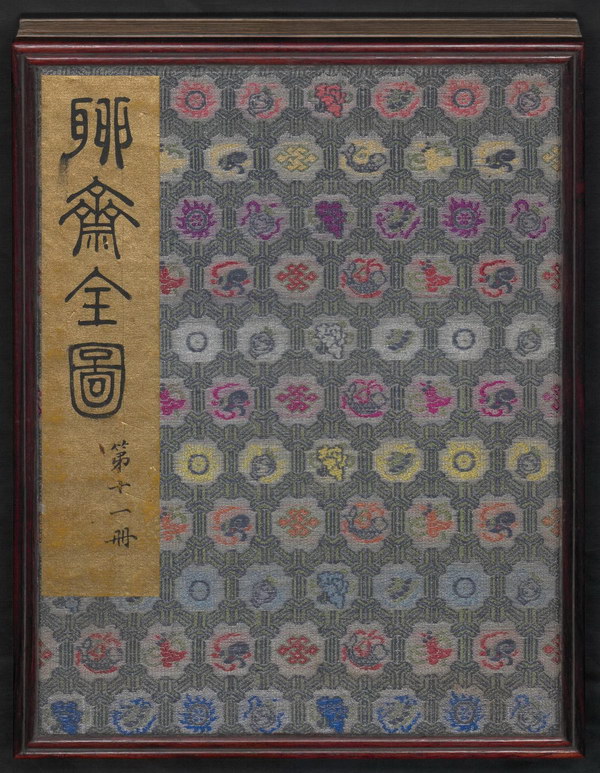 聊齋全圖
第十一册